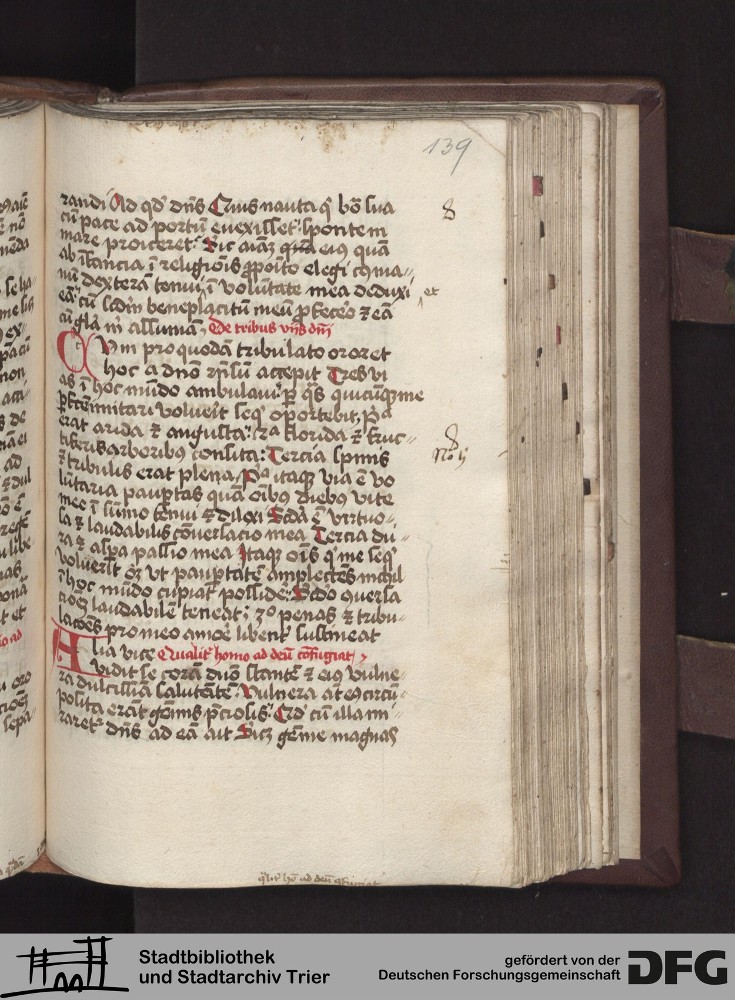 139
randi Ad qd' dn̄s Cuius nauta q' bō sua
cū pace ad portū euexisset sponte in
mare proiceret Sic
ab īfancia ī religiōis ꝓpōito elegi
nū dexterā tenui ī volūtate mea deduxi et
eā cū scd'm beneplacitū meū ꝑfecero ⁊ eā
cū gl'a m̄ assumā De tribus vijs dn̄i
Cvm pro quodā tribulato oraret
hoc a dno rn̄sū accepit Tres vi
as ī hoc mūdo ambulaui ꝑ q̄s quicūq; me
ꝑfecte īmitari voluerit seq' oportebit, pa
erat arida ⁊ angusta 2a florida ⁊ fruc
tiferis arboribus consita Tercia spinis
⁊ tribulis erat plena, pa itaque via ē vo
lūtaria paupertas quā oībus diebus vite
mee ī sūmo tenui ⁊ dilexi Scd'a ē virtuo
sa ⁊ laudabilis cōuersacio mea Tercia du
ra ⁊ aspa passio mea Itaque oīs q' me seq'
voluerit oꝫ vt paupertatē amplectēs nichil
ī hoc mūdo cupiat possidere 2o ꝯuersa
cioēs laudabilē teneat; 3o penas ⁊ tribu
lacoēs pro meo amore libenter sustineat
Alia vice Qualiter homo ad deū cōfugiat
vidit se corā dn̄o stantē ⁊ eius vulne
ra dulcissīa salutātē Vulnera at eius circū
posita erāt gēmis p̄ciosis Qd' cū illa mi
raret' dn̄s ad eā ait Sicut gēme magnas
8
8
No ij
qlit' hō ad deū ꝯfugiat
Stadtbibliothek
und Stadtarchiv Trier
gefördert von der
Deutschen Forschungsgemeinschaft
DFG